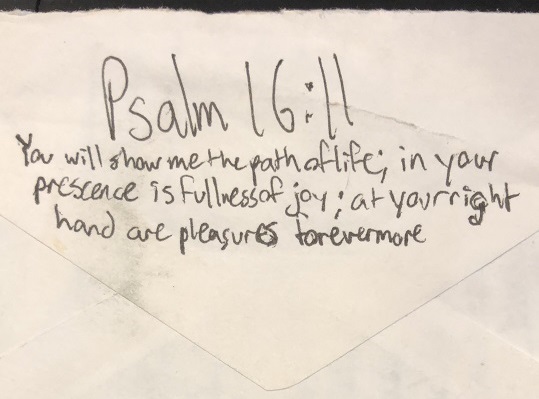 Psalm 16:11
You will show me the path of life; in your
prescence is fullness of joy; at your right
hand are pleasures forevermore